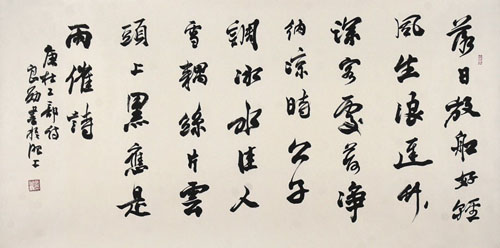 落日放船好輕
風生浪遲竹
深客處荷淨
納涼時公子
調冰水佳人
雪耦絲片雲
頭上黑應是
雨催詩
唐杜工部詩
書於上